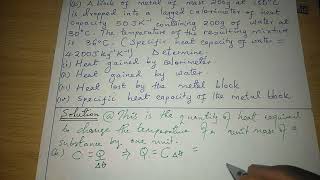 (b) A block of metal of mass 200g at 100°C
is dropped into a lagged calorimeter of heat
capacity 50JK⁻¹ containing 200g of water at
30°C. The temperature of the resulting mixture
is 36°C. (Specific heat capacity of water =
4200Jkg⁻¹K⁻¹) Determine.
(i) Heat gained by calorimeter
(ii) Heat gained by water
(iii) Heat lost by the metal block
(iv) Specific heat capacity of the metal block
Solution @ This is the quantity of heat required
to change the temperature of a unit mass of a
substance by one unit.
(b) C = Q/Δθ ⇒ Q = CΔθ =